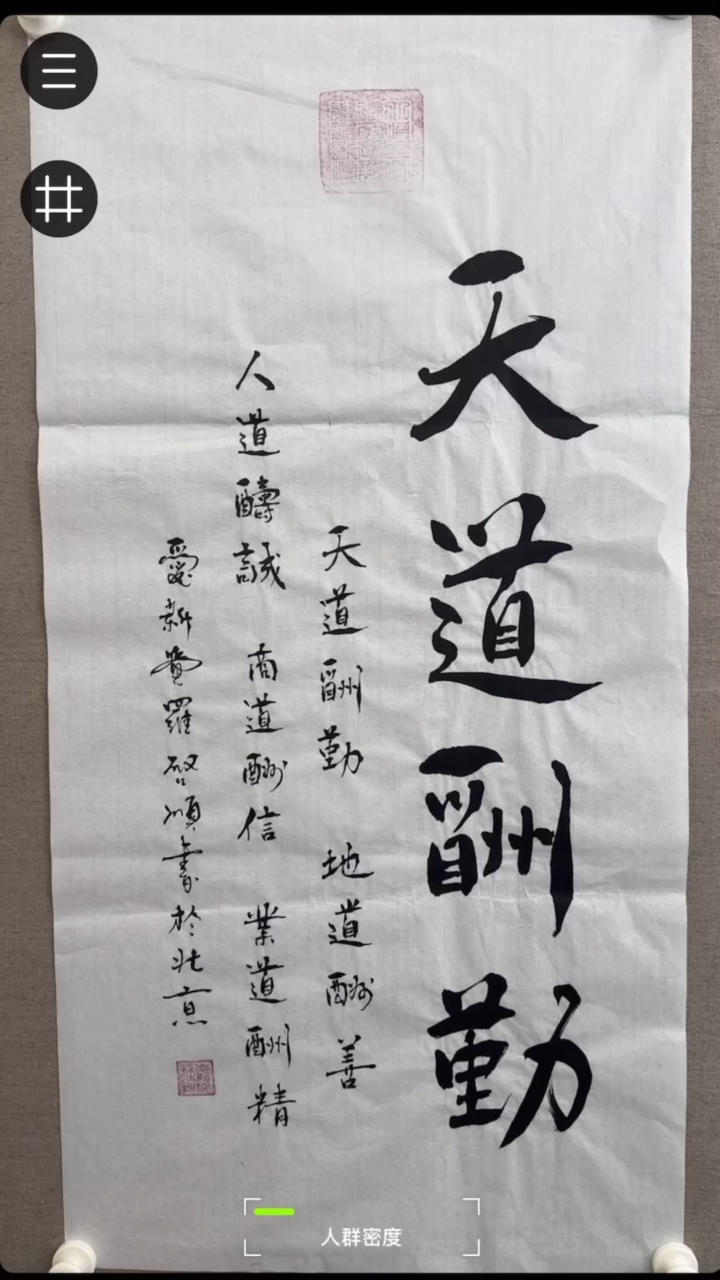 天道酬勤
天道酬勤 地道酬善
人道醻誠 商道酬信 業道酬精
愛新覺羅啓順書於北京
人群密度